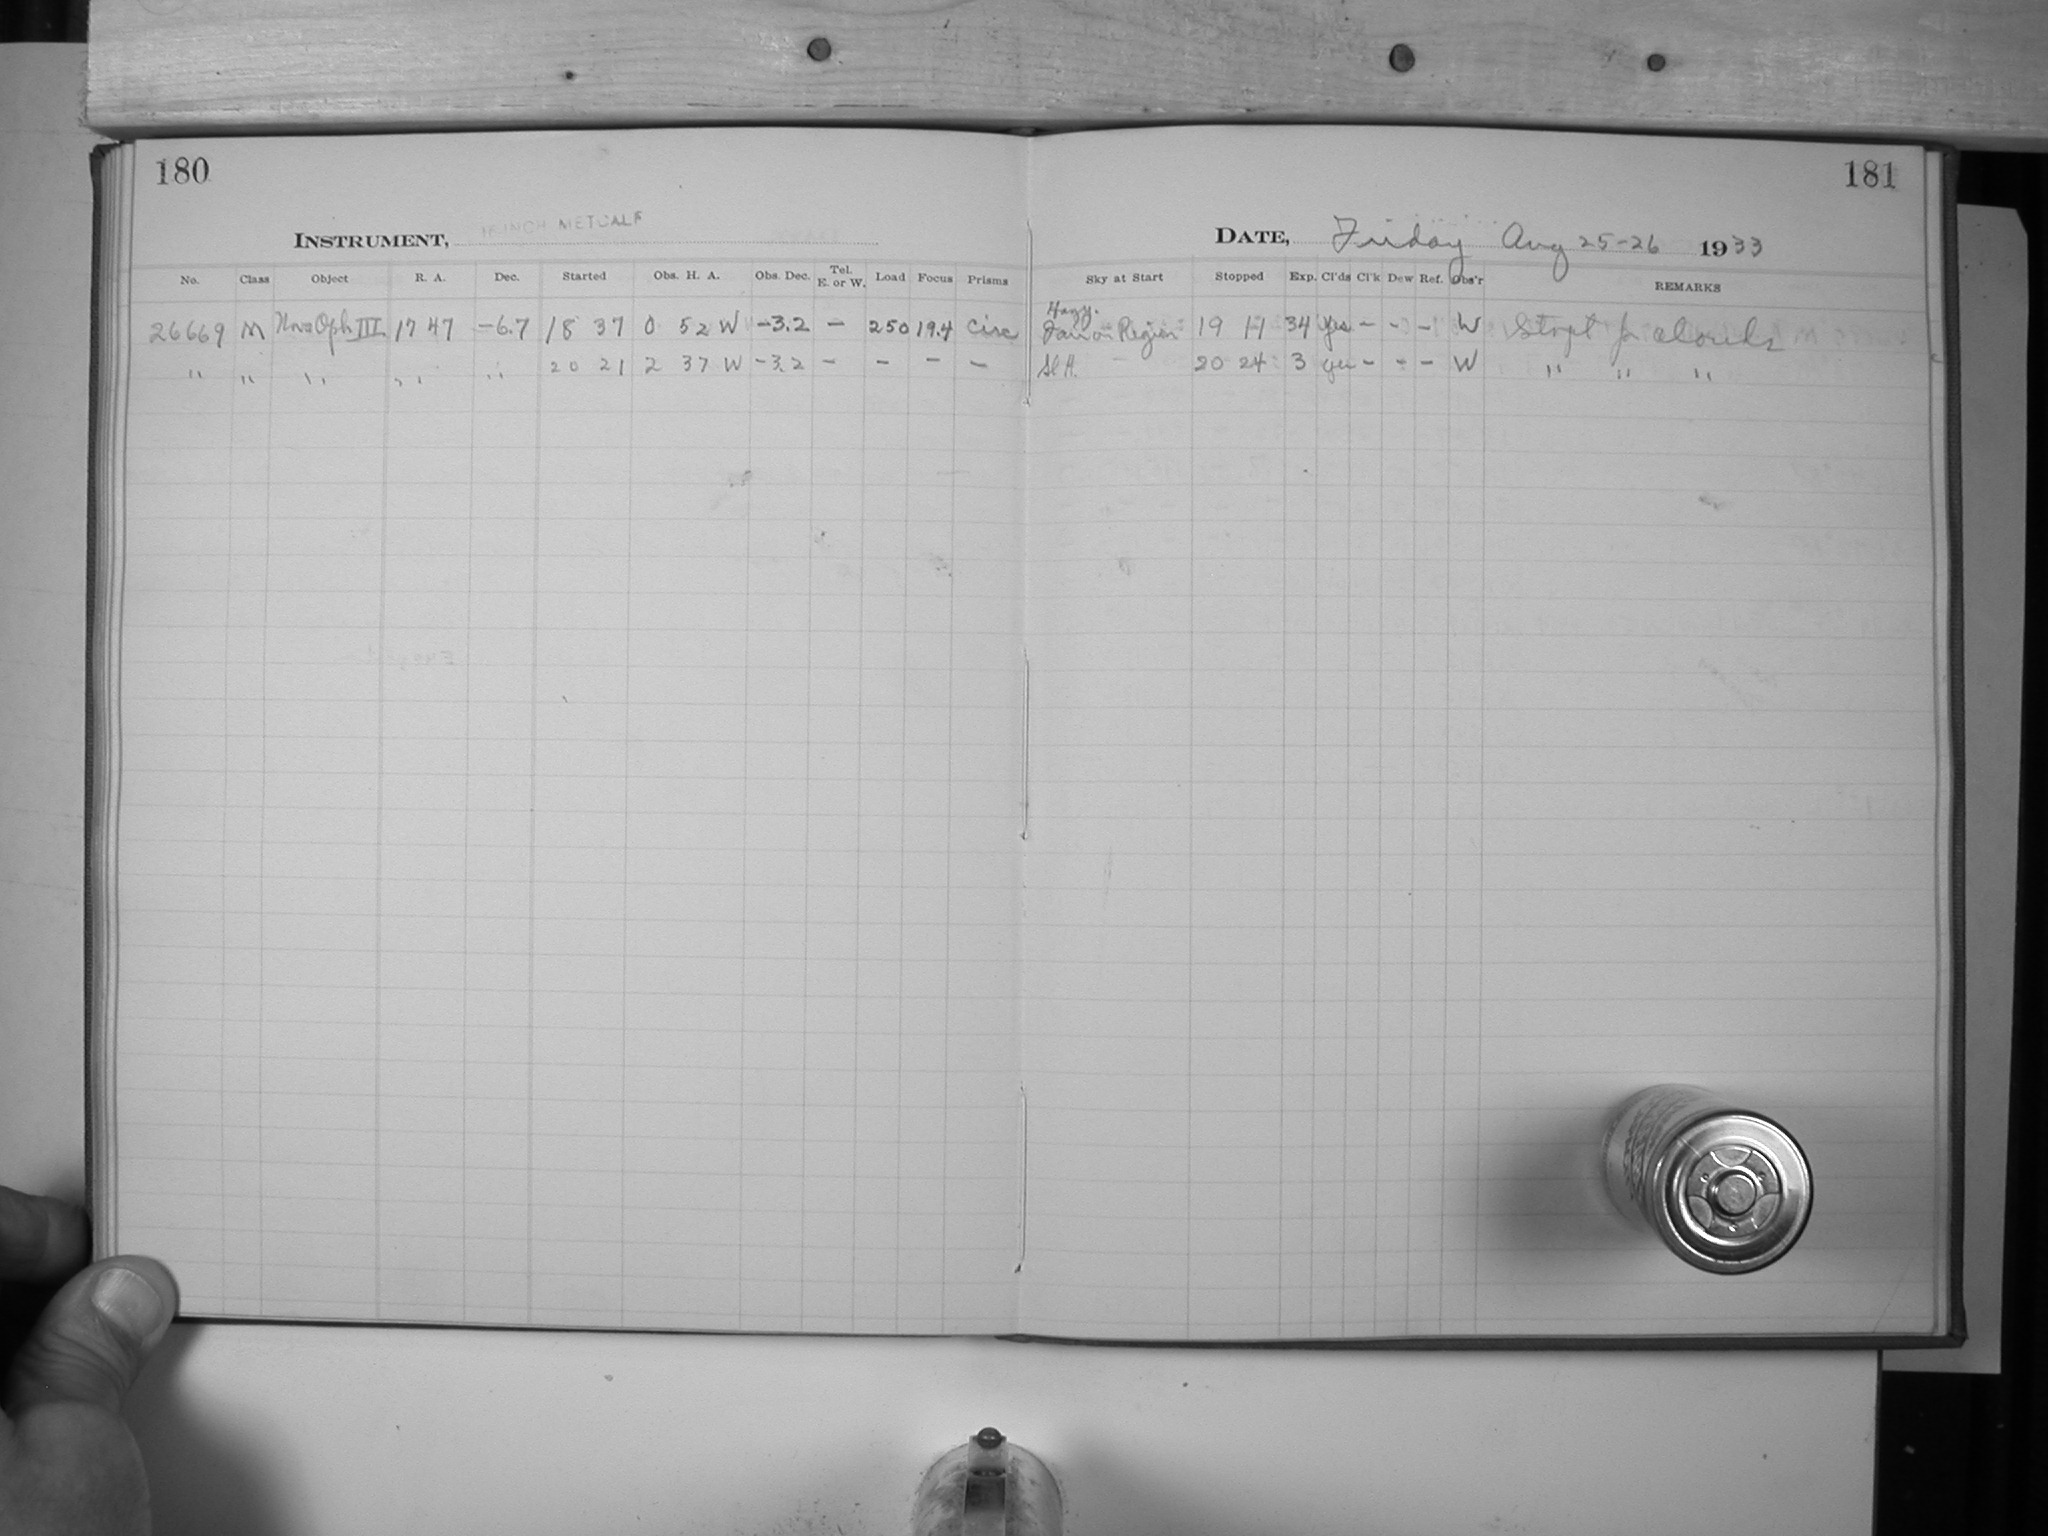 180
181
INSTRUMENT, 16 INCH METCALF
DATE, Friday Aug 25-26 1933
No. Class Object R. A. Dec. Started Obs. H. A. Obs. Dec. Tel. E. or W. Load Focus Prisms Sky at Start Stopped Exp. Cl'ds Cl'k Dew Ref. Obs'r REMARKS
26669 M Nova Oph III 17 47 -6.7 18 37 0 52 W -3.2 - 250 19.4 Circ Hazy. Region 19 11 34 yes - - - W Stopt for clouds
" " " " " 20 21 2 37 W -3.2 - - - - Sl H. 20 24 3 yes - - - W " " "